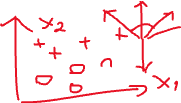 x₂
x₁